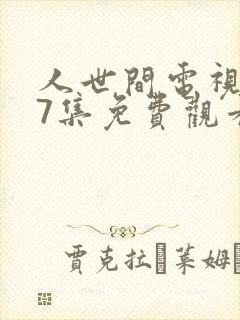 人世間電視
7集免費觀看
賈克拉 萊姆